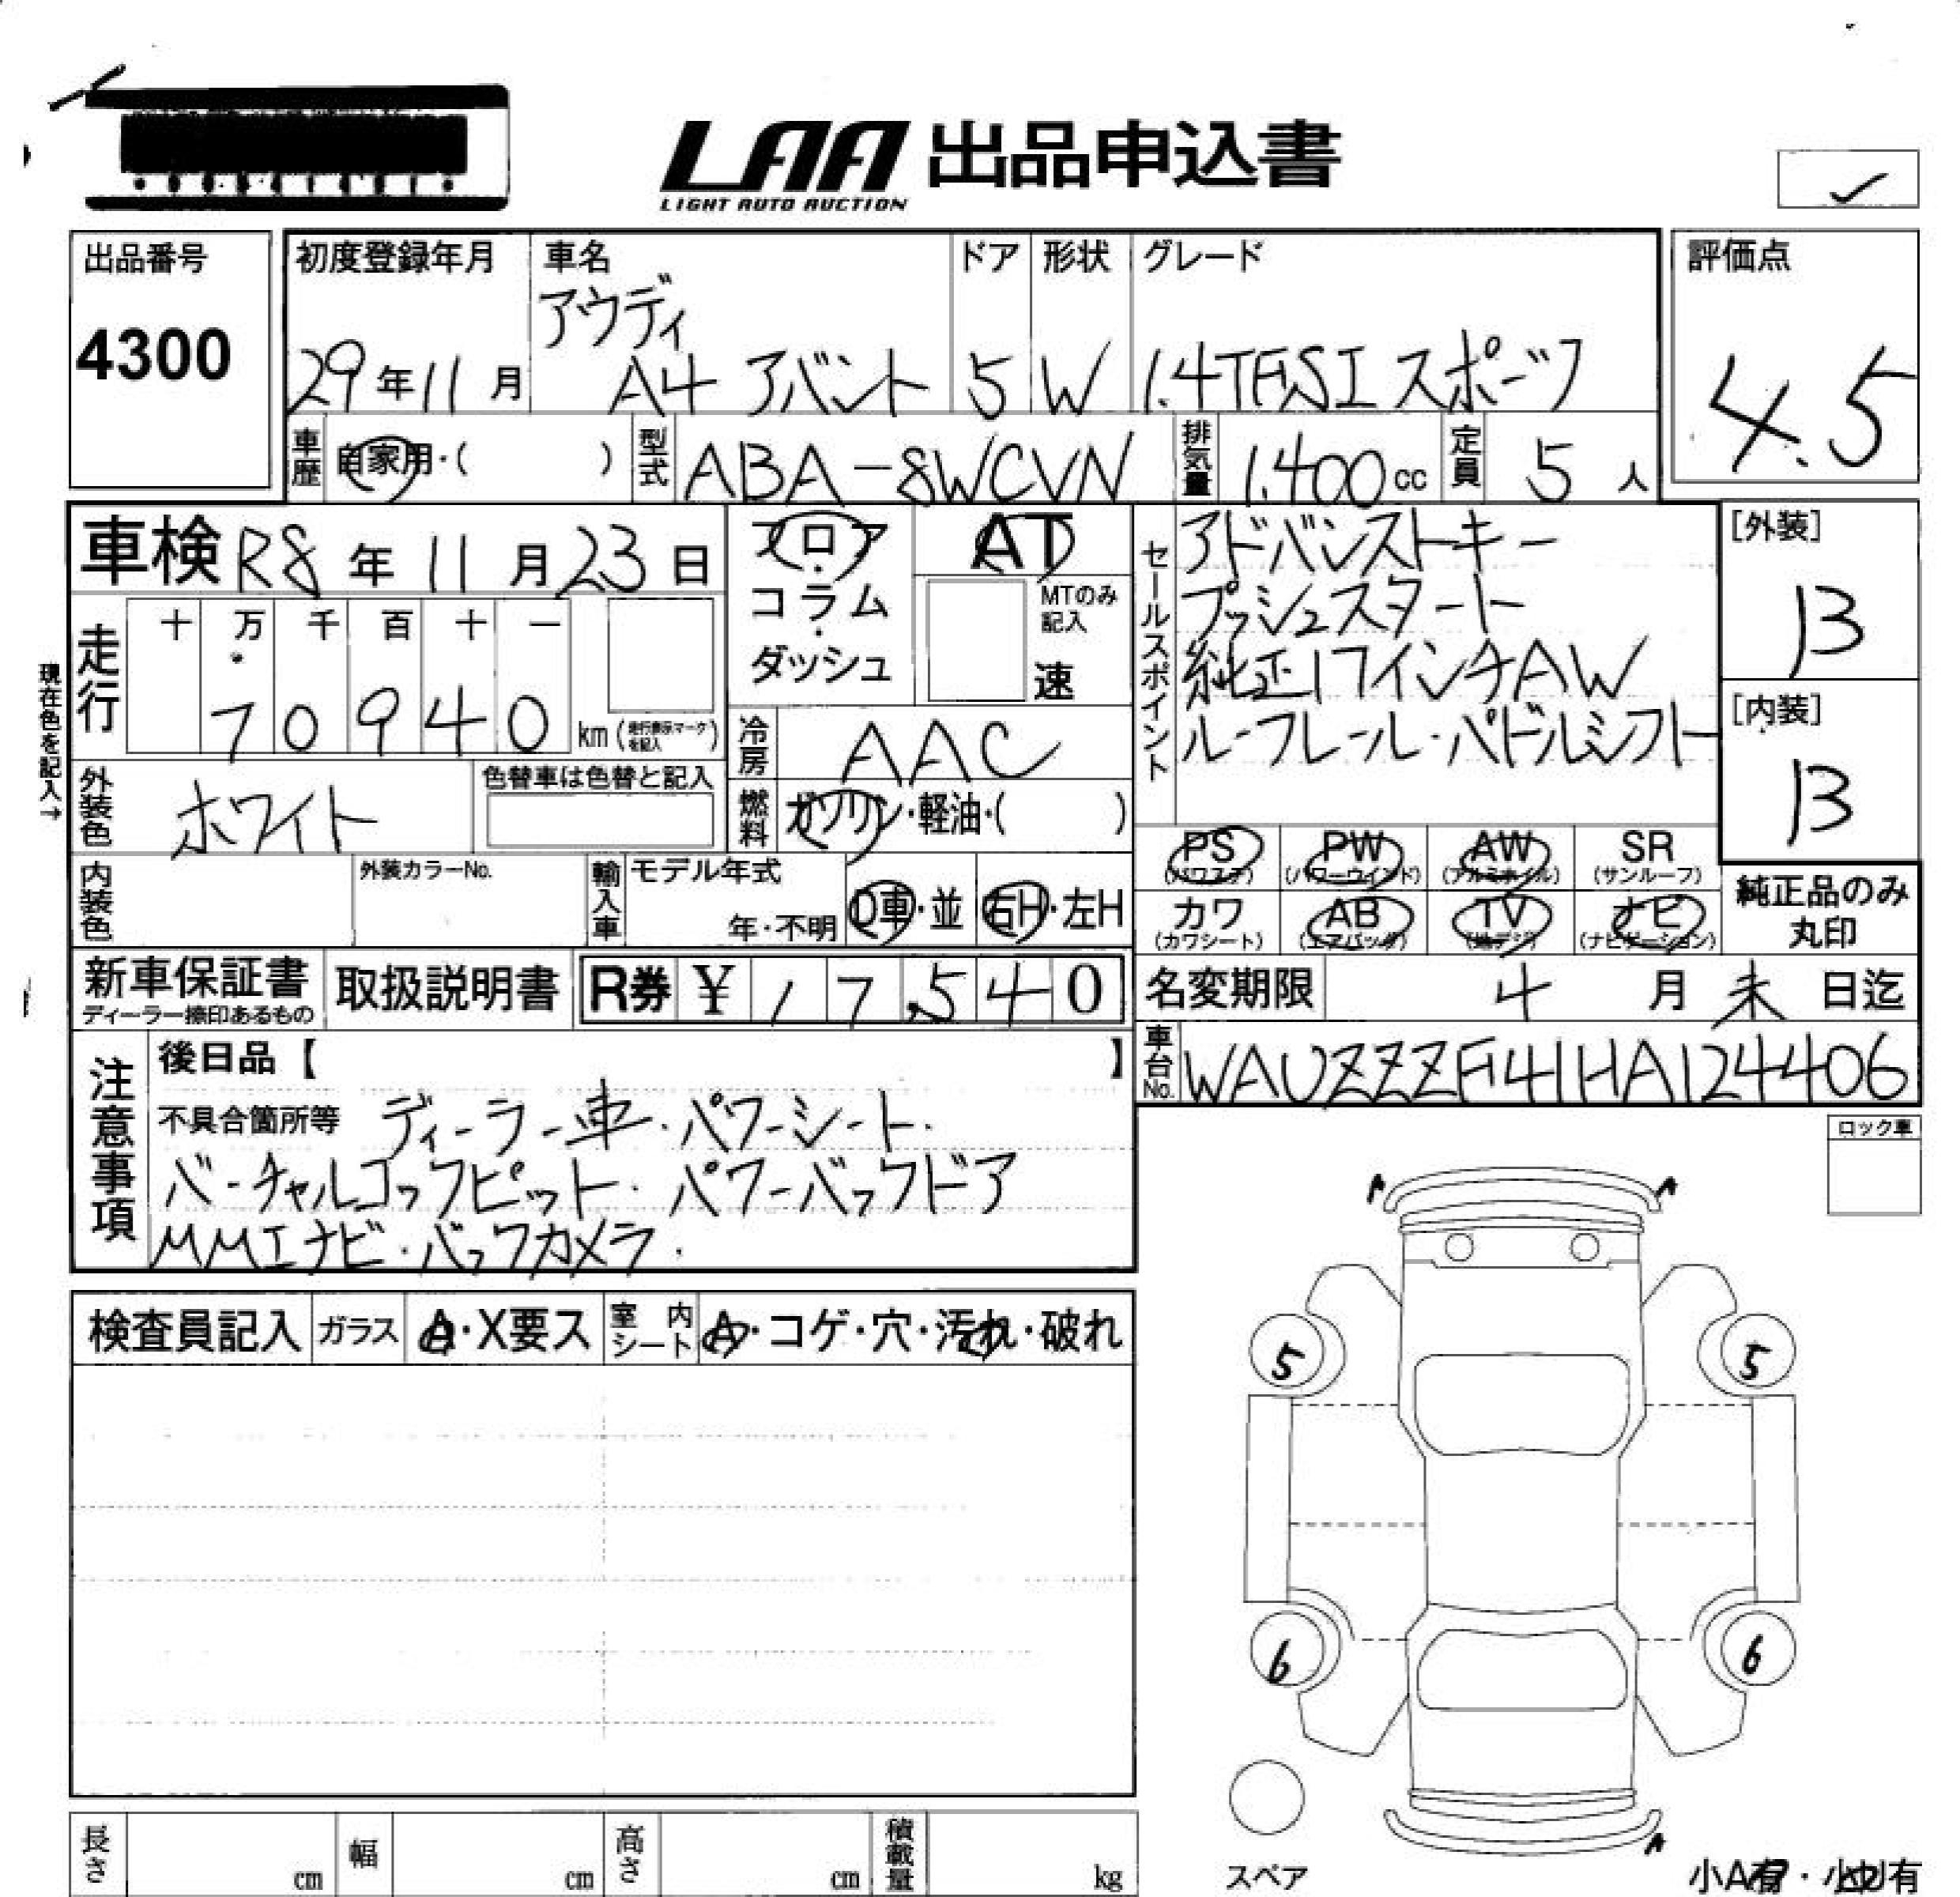 LAA 出品申込書
LIGHT AUTO AUCTION
出品番号
4300
初度登録年月
29年11月
車名
アウディ
A4 アバント
ドア
5
形状
W
グレード
1.4TFSI スポーツ
評価点
4.5
車歴
自家用・( )
型式
ABA-8WCVN
排気量
1,400cc
定員
5人
車検 R8年11月23日
現在色を記入→
走行
十 万 千 百 十 一
7 0 9 4 0 km (走行表示マークを記入)
フロア・コラム・ダッシュ
AT
MTのみ記入
速
冷房
AAC
燃料
ガソリン・軽油・( )
セールスポイント
アドバンストキー
プッシュスタート
純正17インチAW
ルーフレール・パドルシフト
[外装]
B
[内装]
B
外装色
ホワイト
色替車は色替と記入
内装色
外装カラーNo.
輸入車
モデル年式
年・不明
D車・並
右H・左H
PS (パワステ)
PW (パワーウインド)
AW (アルミホイル)
SR (サンルーフ)
カワ (カワシート)
AB (エアバッグ)
TV (地デジ)
ナビ (ナビゲーション)
純正品のみ
丸印
新車保証書
ディーラー捺印あるもの
取扱説明書
R券 ¥ 17,540
名変期限 4月末日迄
車台No.
WAUZZZF41HA124406
注意事項
後日品【 】
不具合箇所等 ディーラー車・パワーシート・
バーチャルコックピット・パワーバックドア
MMIナビ・バックカメラ・
ロック車
A A
検査員記入
ガラス
A・X要ス
室内シート
A・コゲ・穴・汚れ・破れ
5 5
6 6
A
スペア
小A有・小U有
長さ cm
幅 cm
高さ cm
積載量 kg